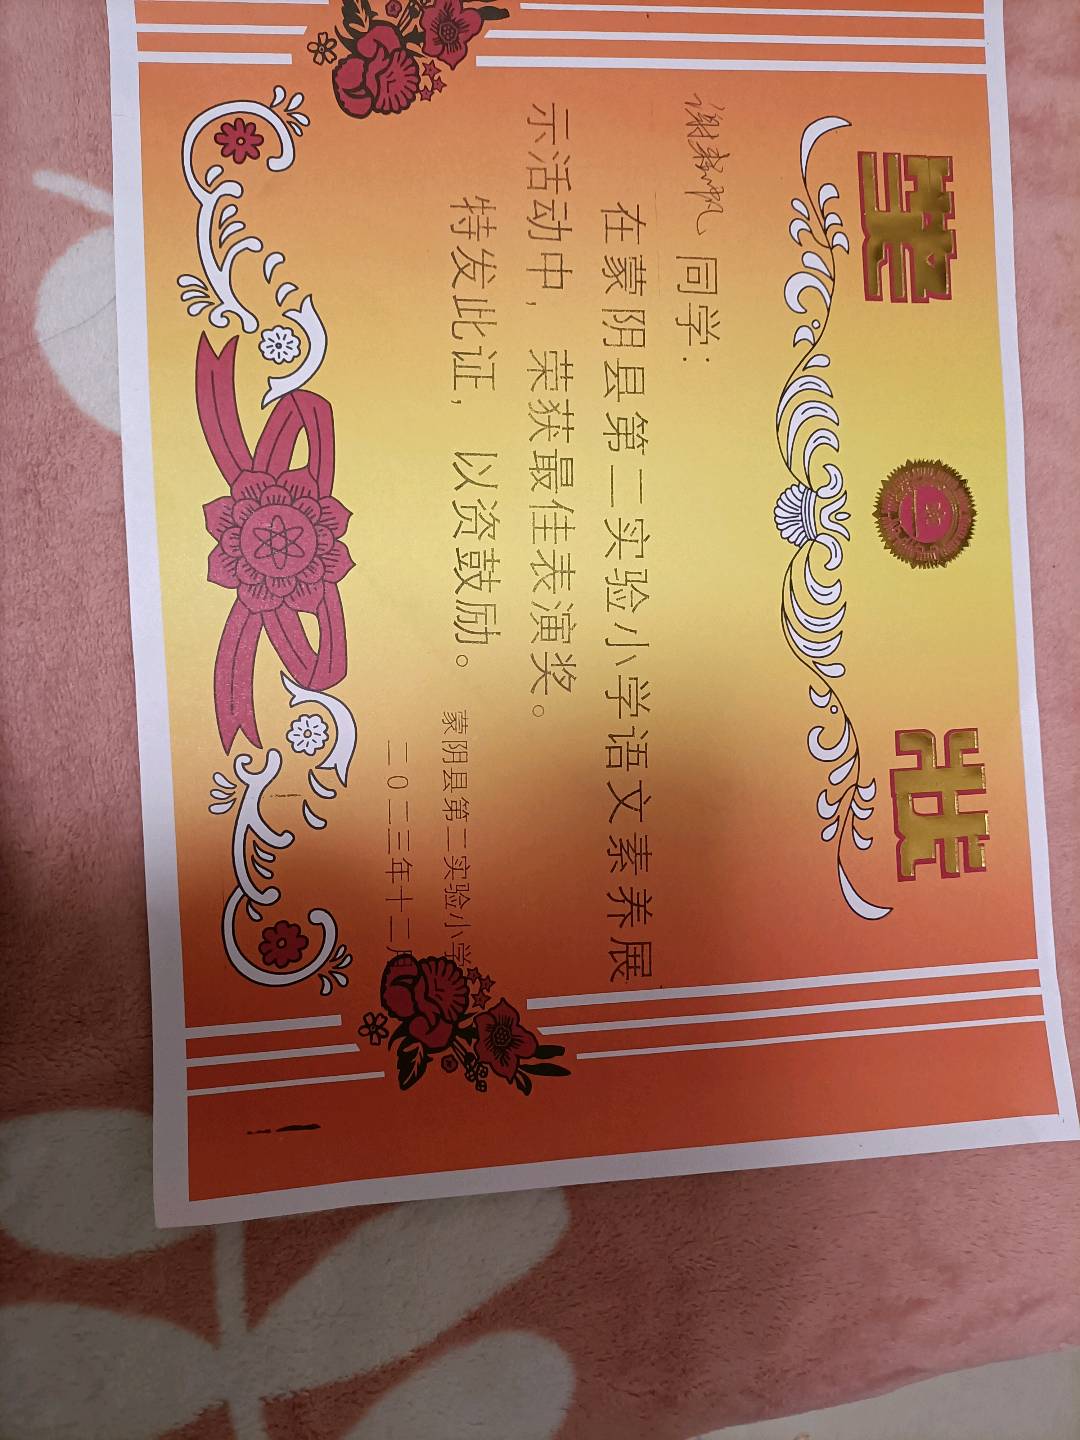 奖状
同学：
在蒙阴县第二实验小学语文素养展
示活动中，荣获最佳表演奖。
特发此证，以资鼓励。
蒙阴县第二实验小学
二0二三年十二月